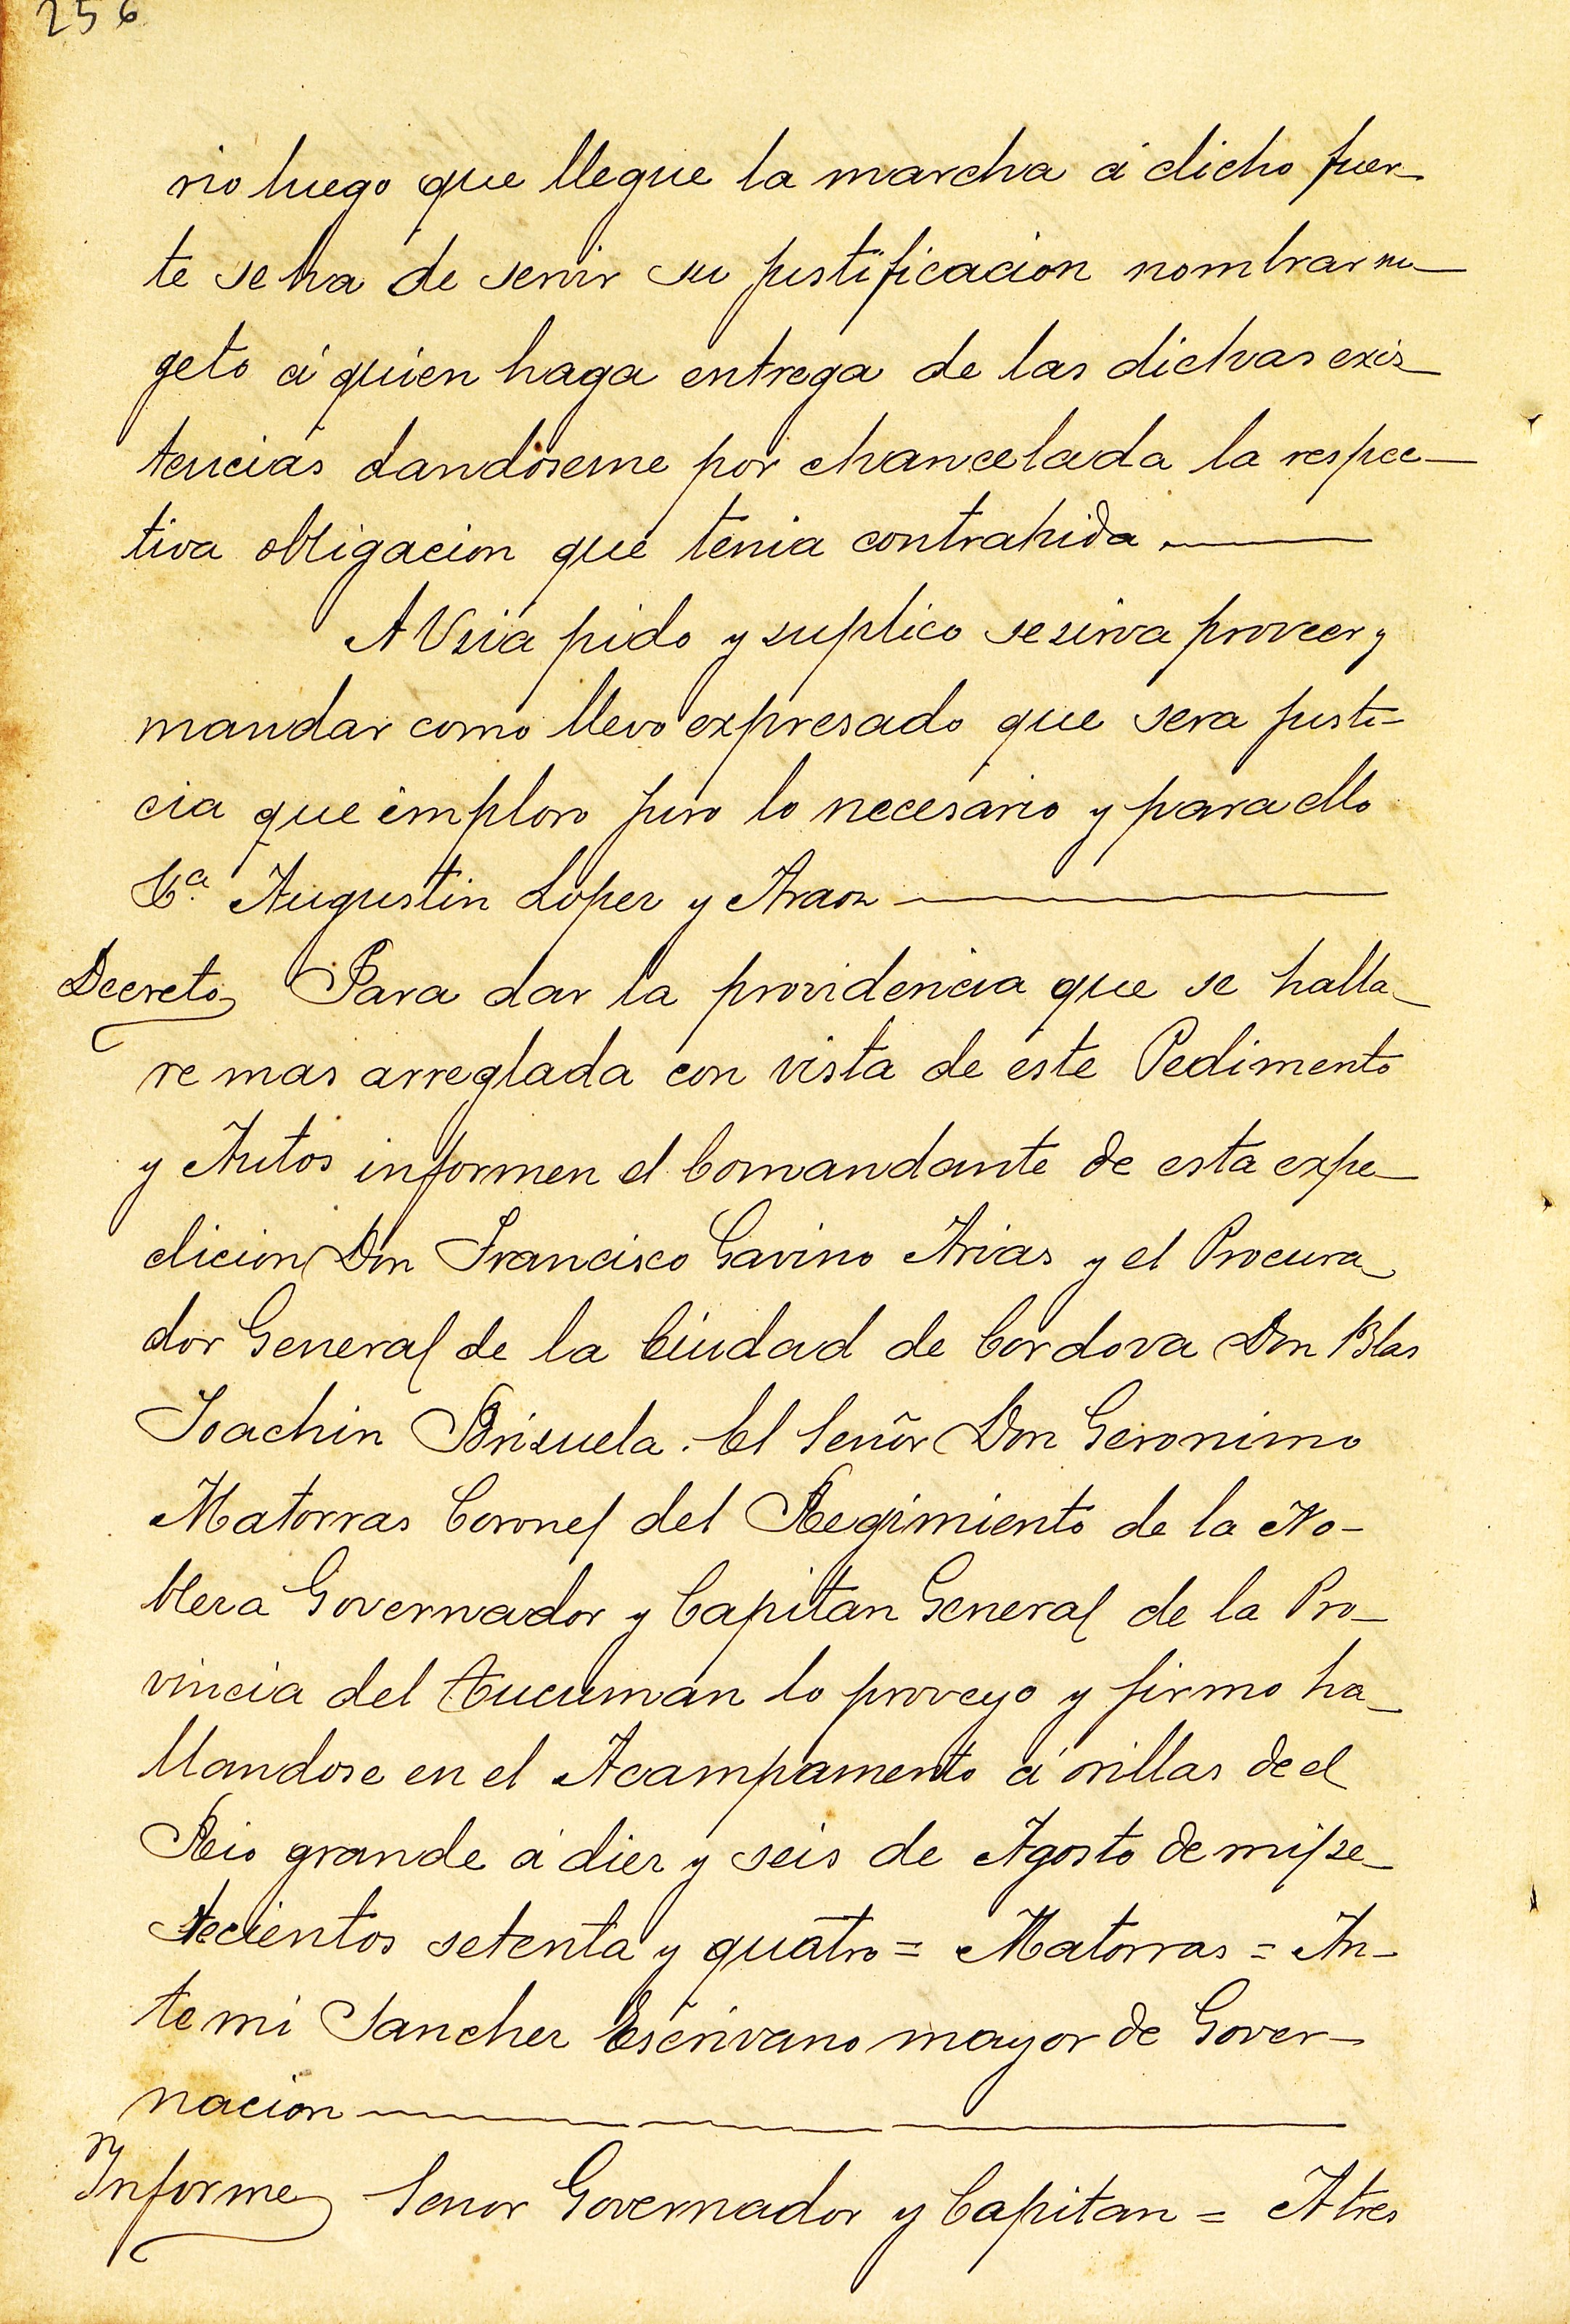 256
rio luego que llegue la marcha á dicho fuer-
te se ha de servir su justificacion nombrar su-
geto á quien haga entrega de las dichas exis-
tencias dandoseme por chancelada la respec-
tiva obligacion que tenia contrahida
A Vsia pido y suplico se sirva proveer y
mandar como llevo expresado que sera justi-
cia que imploro juro lo necesario y para ello
Vª Augustin Lopez y Araoz
Decreto Para dar la providencia que se halla-
re mas arreglada con vista de este Pedimento
y Autos informen el Comandante de esta expe-
dicion Don Francisco Gavino Arias y el Procura-
dor General de la Ciudad de Cordova Don Blas
Joachin Brizuela. El Señor Don Geronimo
Matorras Coronel del Regimiento de la No-
bleza Governador y Capitan General de la Pro-
vincia del Tucuman lo proveyo y firmo ha-
llandose en el Acampamento á orillas de el
Rio grande á diez y seis de Agosto de mil se-
tecientos setenta y quatro = Matorras = An-
te mi Sanchez Escrivano mayor de Gover-
nacion
Informe Senor Governador y Capitan = A tres